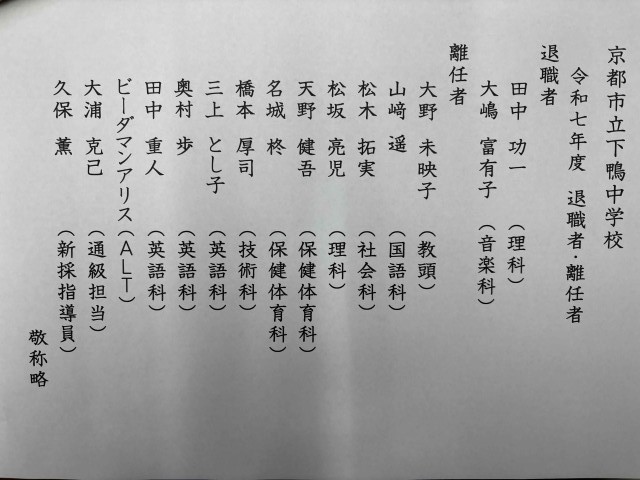 京都市立下鴨中学校
令和七年度 退職者・離任者
退職者
田中 功一 (理科)
大嶋 富有子 (音楽科)
離任者
大野 未映子 (教頭)
山﨑 遥 (国語科)
松木 拓実 (社会科)
松坂 亮児 (理科)
天野 健吾 (保健体育科)
名城 柊 (保健体育科)
橋本 厚司 (技術科)
三上 とし子 (英語科)
奥村 歩 (英語科)
田中 重人 (英語科)
ビーダマンアリス(ALT)
大浦 克己 (通級担当)
久保 薫 (新採指導員)
敬称略